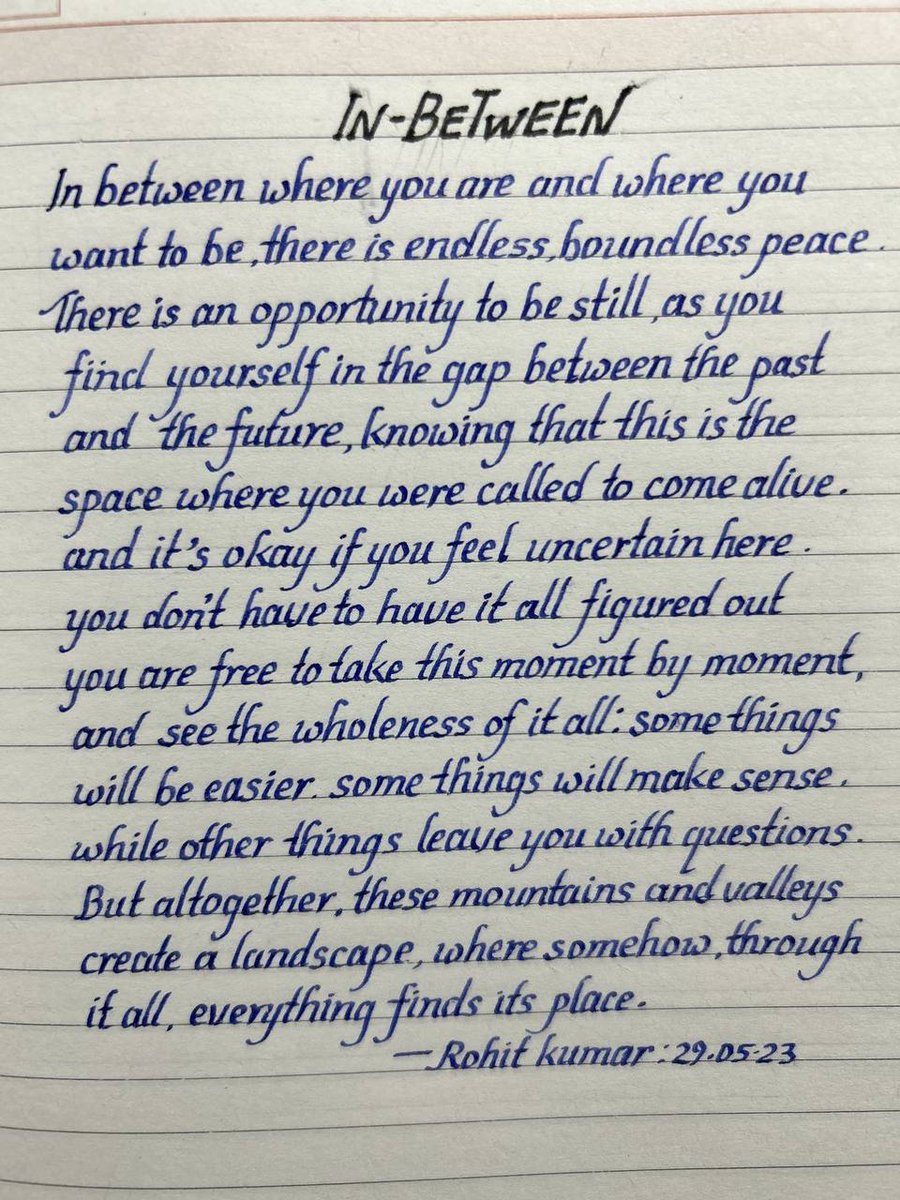 IN-BETWEEN
In between where you are and where you
want to be, there is endless, boundless peace.
There is an opportunity to be still, as you
find yourself in the gap between the past
and the future, knowing that this is the
space where you were called to come alive.
and it's okay if you feel uncertain here.
you don't have to have it all figured out
you are free to take this moment by moment,
and see the wholeness of it all: some things
will be easier. some things will make sense.
while other things leave you with questions.
But altogether, these mountains and valleys
create a landscape, where somehow, through
it all, everything finds its place.
— Rohit kumar: 29.05.23